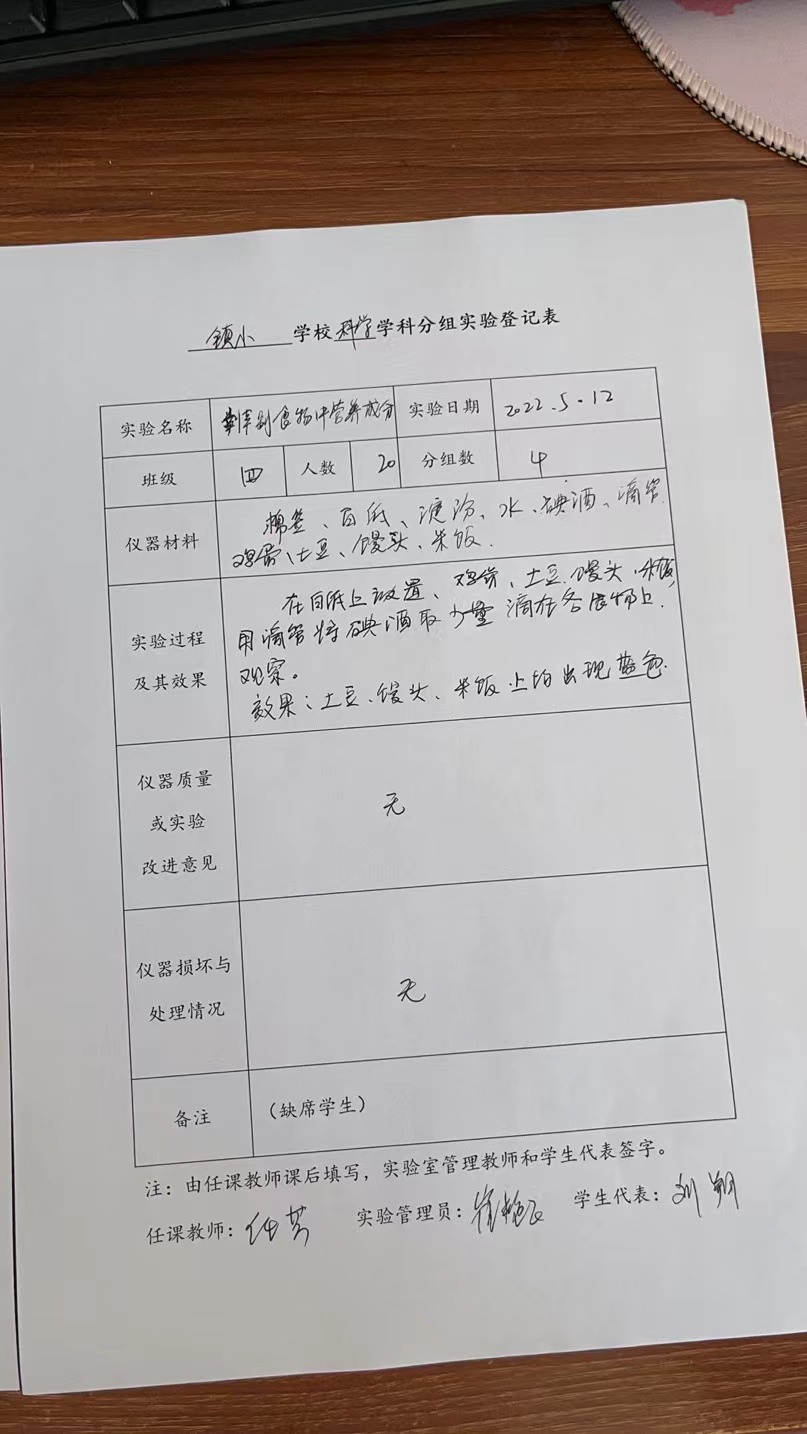 镇小 学校 科学 学科分组实验登记表
实验名称 食物中营养成分 实验日期 2022.5.12
班级 四 人数 20 分组数 4
仪器材料
棉签、白纸、淀粉、水、碘酒、滴管
鸡蛋、土豆、馒头、米饭.
实验过程
及其效果
在白纸上放置、鸡蛋、土豆.馒头.米饭,
用滴管将碘酒取少量滴在各食物上.
观察。
效果:土豆、馒头、米饭上均出现蓝色.
仪器质量
或实验
改进意见
无
仪器损坏与
处理情况
无
备注 (缺席学生)
注:由任课教师课后填写,实验室管理教师和学生代表签字。
任课教师:任芳 实验管理员:崔 学生代表:刘翔